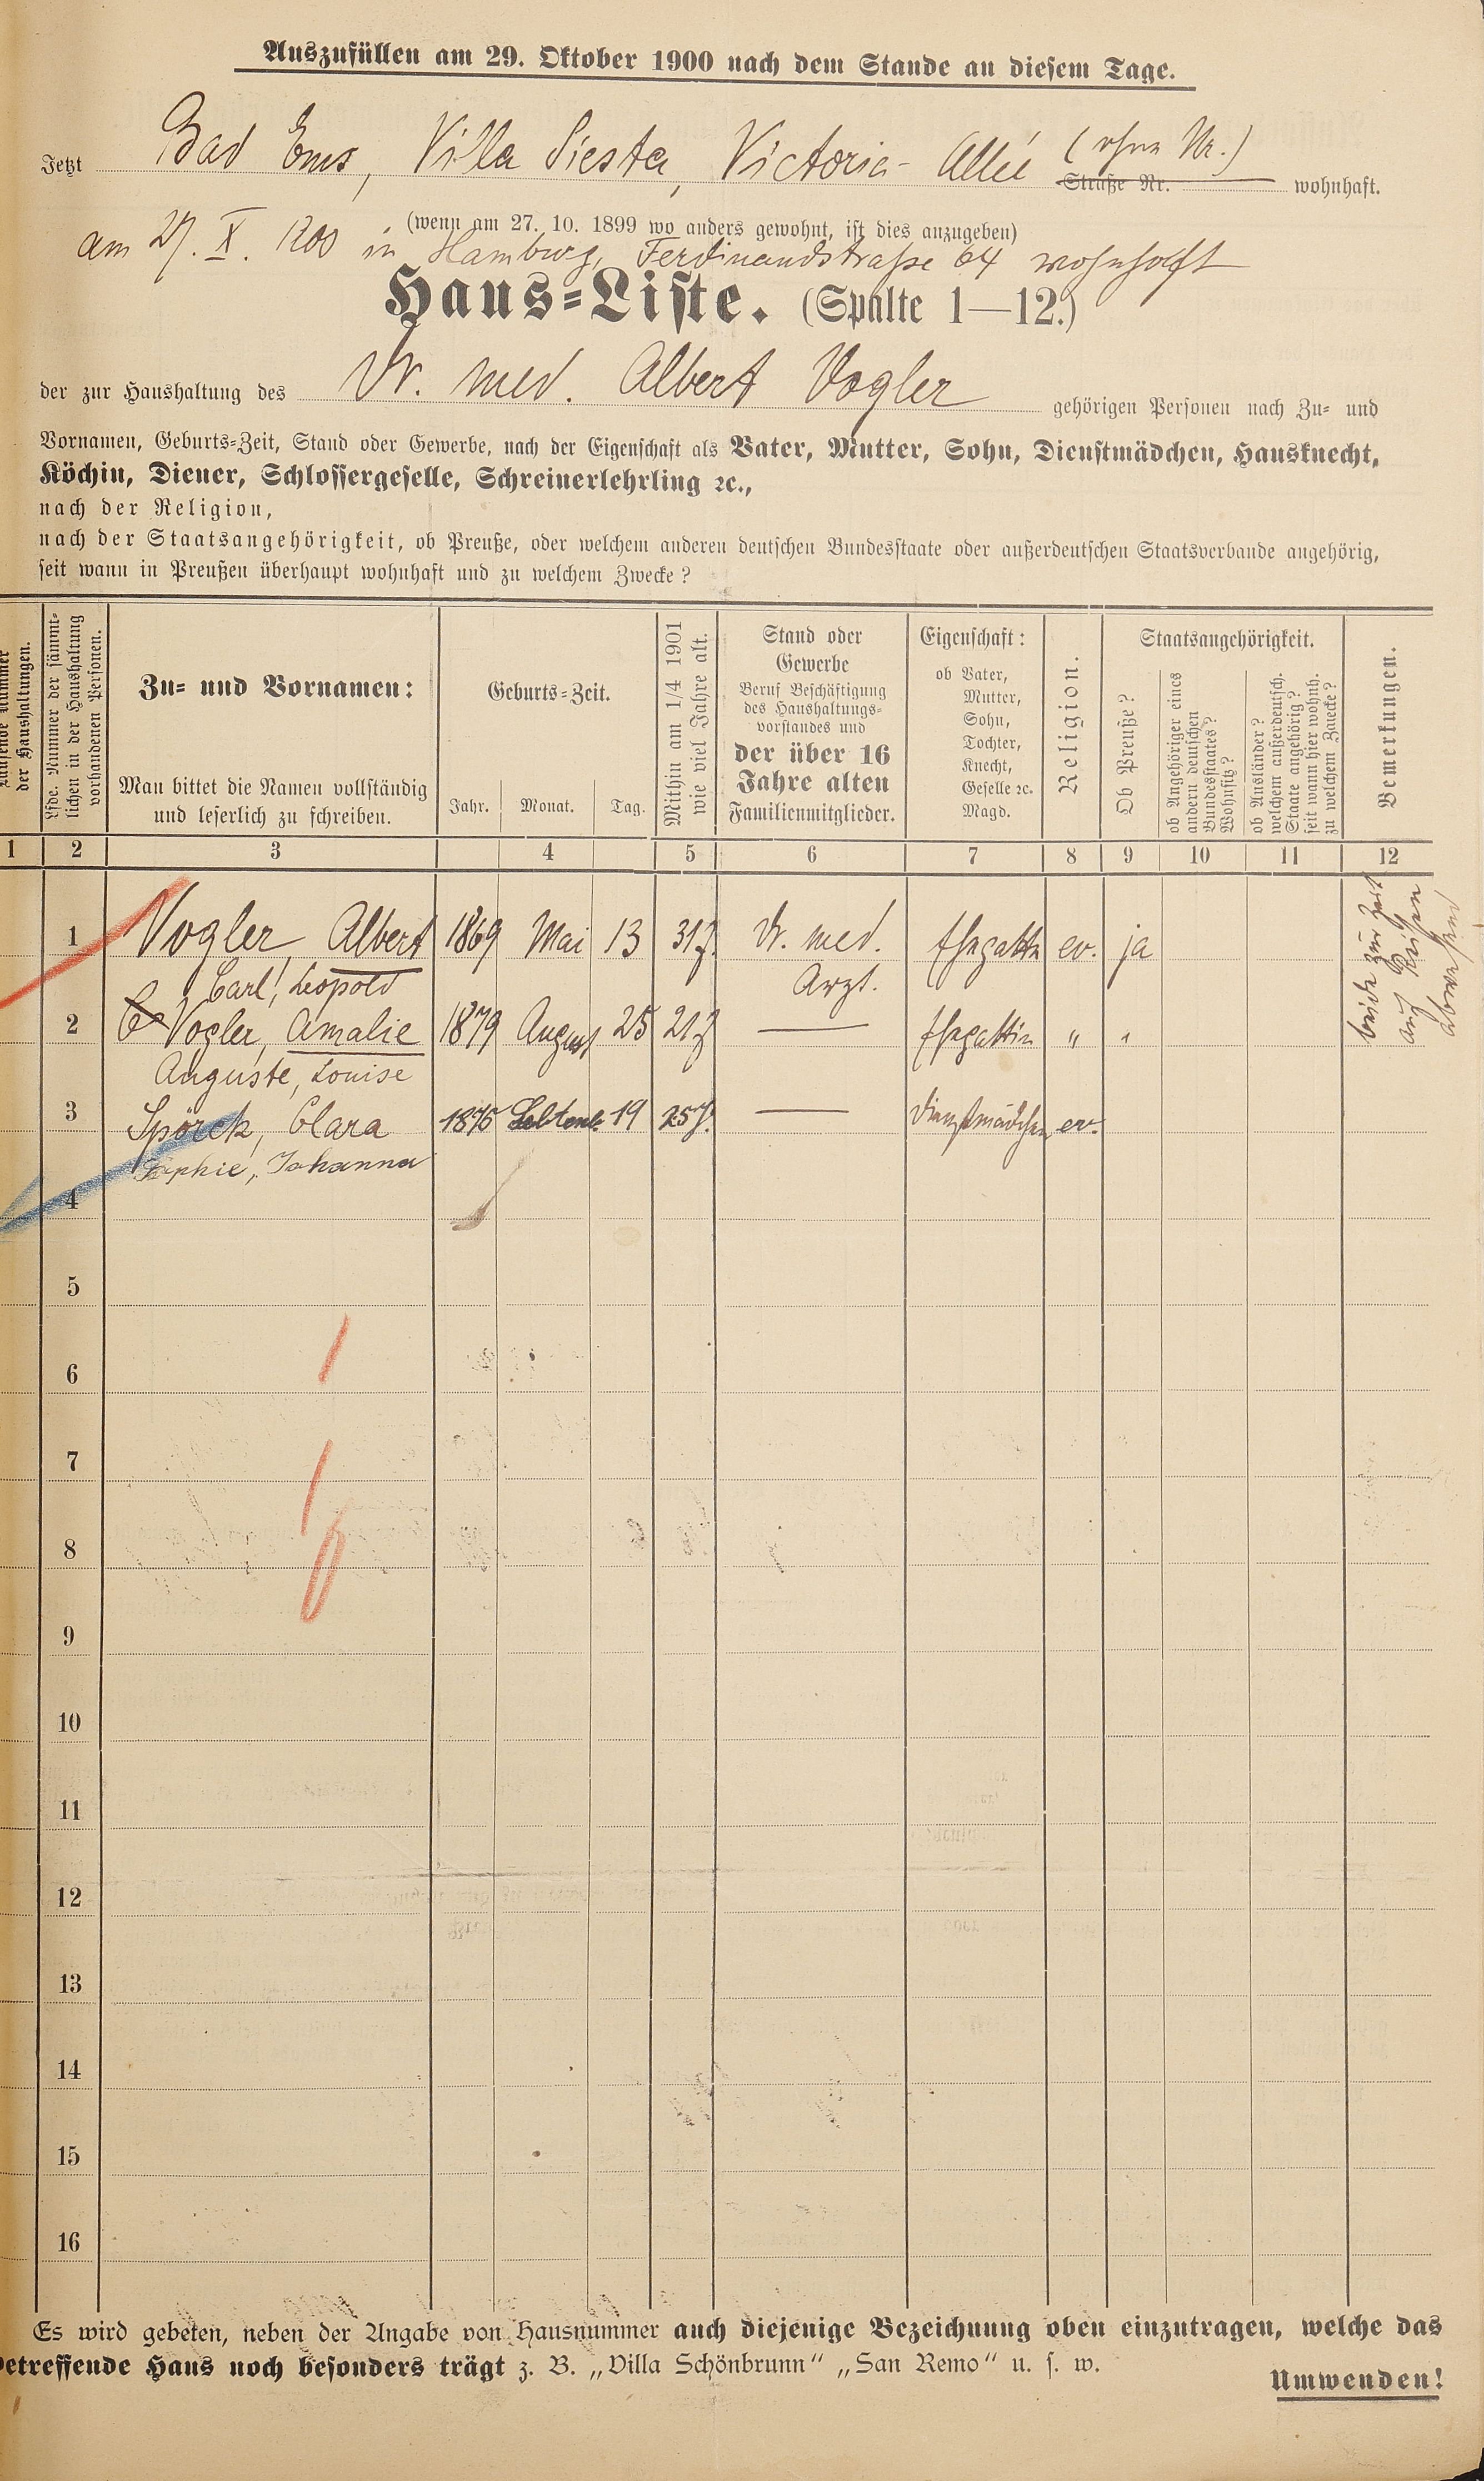 Auszufüllen am 29. Oktober 1900 nach dem Stande an diesem Tage.
Jetzt Bad Ems, Villa Siesta, Victoria-Allée (ohne Nr.) Straße Nr. wohnhaft.
(wenn am 27. 10. 1899 wo anders gewohnt, ist dies anzugeben)
am 27. X. 1200 in Hamburg, Ferdinandstraße 64 wohnhaft
Haus-Liste. (Spalte 1—12.)
der zur Haushaltung des Dr. med. Albert Vogler gehörigen Personen nach Zu- und
Vornamen, Geburts-Zeit, Stand oder Gewerbe, nach der Eigenschaft als Vater, Mutter, Sohn, Dienstmädchen, Hausknecht,
Köchin, Diener, Schlossergeselle, Schreinerlehrling ꝛc.,
nach der Religion,
nach der Staatsangehörigkeit, ob Preuße, oder welchem anderen deutschen Bundesstaate oder außerdeutschen Staatsverbande angehörig,
seit wann in Preußen überhaupt wohnhaft und zu welchem Zwecke?
Laufende Nummer
der Haushaltungen.
Lfde. Nummer der sämmt-
lichen in der Haushaltung
vorhandenen Personen.
Zu- und Vornamen:
Man bittet die Namen vollständig
und leserlich zu schreiben.
Geburts-Zeit.
Jahr. Monat. Tag.
Mithin am 1/4 1901
wie viel Jahre alt.
Stand oder
Gewerbe
Beruf Beschäftigung
des Haushaltungs-
vorstandes und
der über 16
Jahre alten
Familienmitglieder.
Eigenschaft:
ob Vater,
Mutter,
Sohn,
Tochter,
Knecht,
Geselle ꝛc.
Magd.
Religion.
Staatsangehörigkeit.
Ob Preuße?
ob Angehöriger eines
andern deutschen
Bundesstaates?
Wohnsitz?
ob Ausländer?
welchem außerdeutsch.
Staate angehörig?
seit wann hier wohnh.
zu welchem Zwecke?
Bemerkungen.
1 2 3 4 5 6 7 8 9 10 11 12
1 Vogler, Albert 1869 Mai 13 31J. Dr. med. Ehegatte ev. ja
Carl, Leopold Arzt.
beide zur Zeit
auf Reisen
abwesend
2 Vogler, Amalie 1879 August 25 21J — Ehegattin " "
Auguste, Louise
3 Spörck, Clara 1875 Septemb. 19 25J. — Dienstmädchen ev.
Sophie, Johanna
4
5
6
7
8
9
10
11
12
13
14
15
16
Es wird gebeten, neben der Angabe von Hausnummer auch diejenige Bezeichnung oben einzutragen, welche das
betreffende Haus noch besonders trägt z. B. „Villa Schönbrunn“ „San Remo“ u. s. w.
Umwenden!